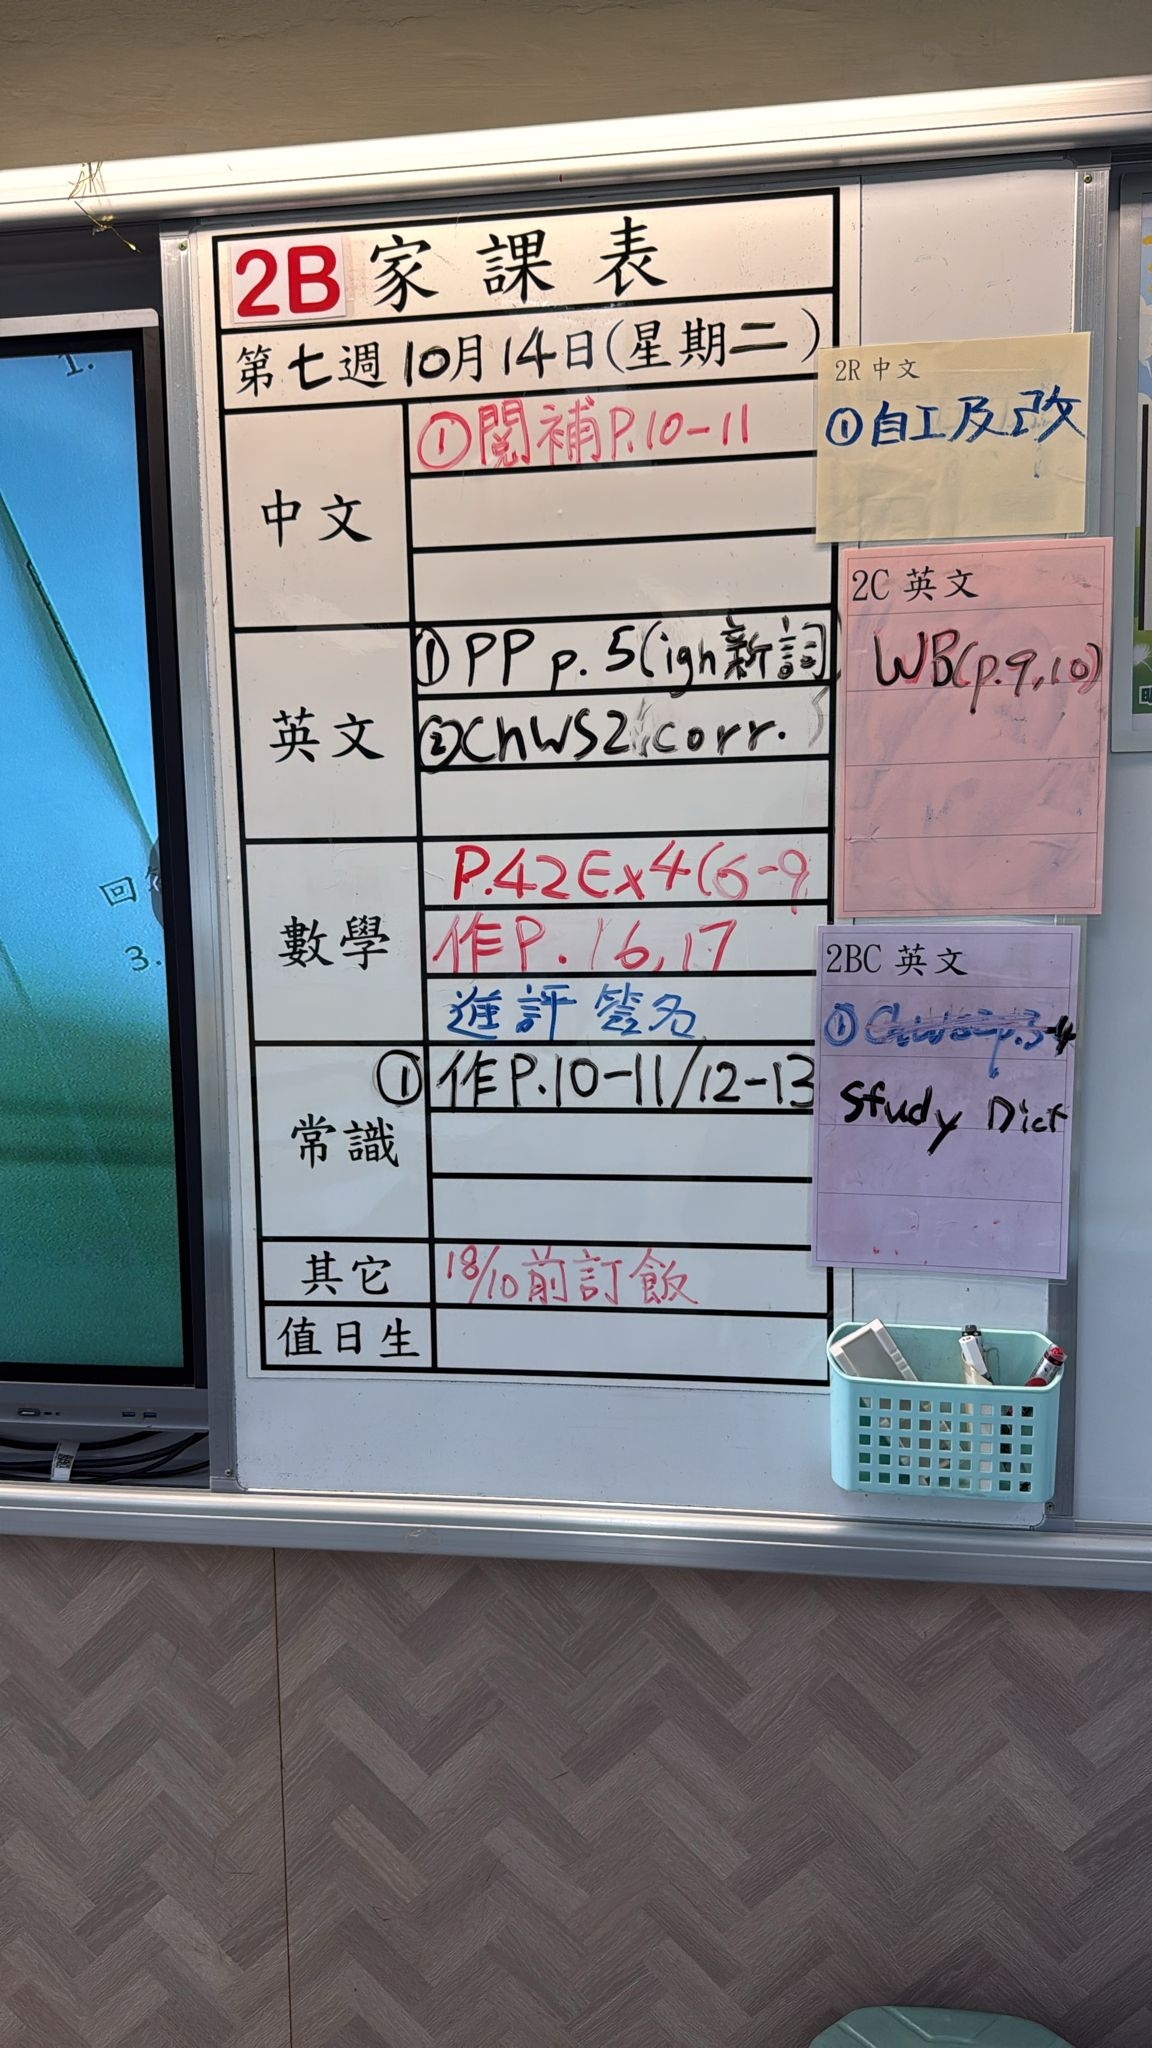 1.
回
3.
2B 家課表
第七週10月14日(星期二)
中文
①閱補P.10-11
英文
①PP p.5(igh新詞)
②ChWS2 corr.
數學
P.42Ex4(6-9
作P.16,17
進評 簽名
常識
①作P.10-11/12-13
其它
18/10前訂飯
值日生
2R 中文
①自工及改
2C 英文
WB(p.9,10)
2BC 英文
①
Study Dict